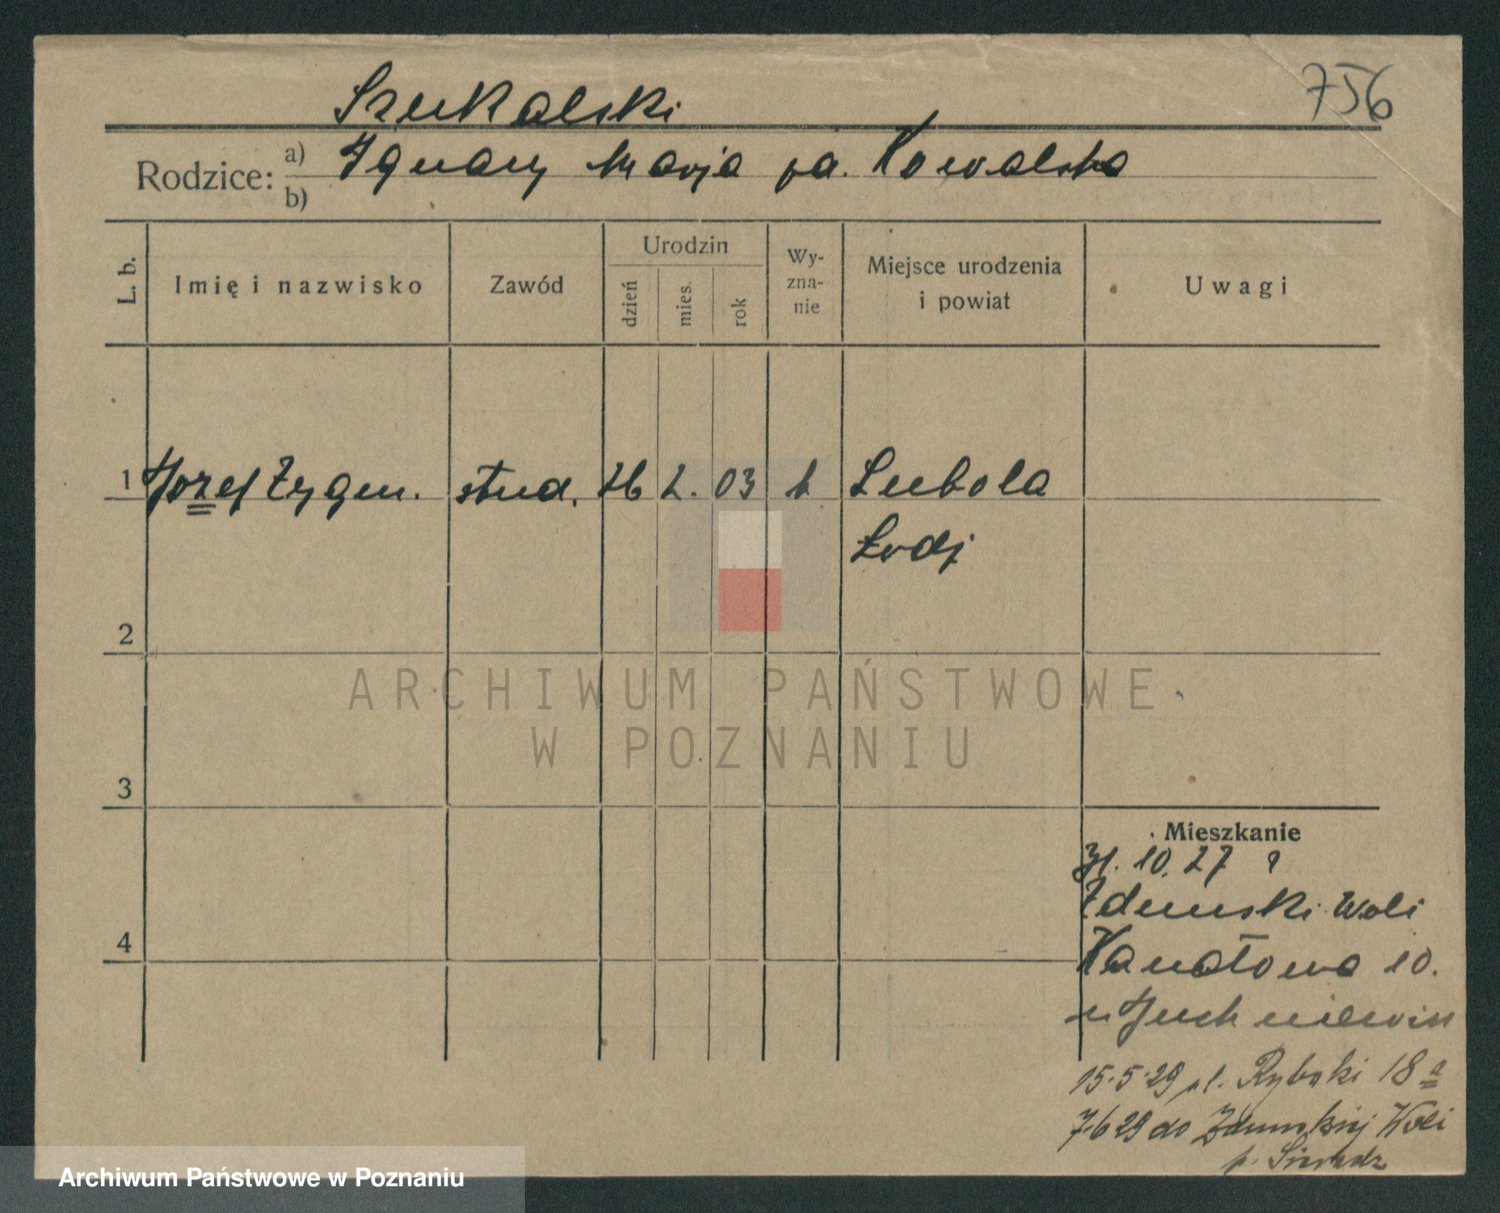 756
Szukalski
Rodzice: a) Ignacy Marja pa. Kowalska
b)
L. b.
Imię i nazwisko
Zawód
Urodzin
dzień
mies.
rok
Wy-
zna-
nie
Miejsce urodzenia
i powiat
Uwagi
1 Józef Zygm. stud. 26 2. 03 k Lubola
Łodj
2
3
4
Mieszkanie
31. 10. 27 z
Zdunski Woli
Kanałowa 10.
u
15.5.29 pl. Rybaki 18a
7.6 29 do Zdunskiej Woli
p. Sieradz
ARCHIWUM PAŃSTWOWE
W POZNANIU
Archiwum Państwowe w Poznaniu